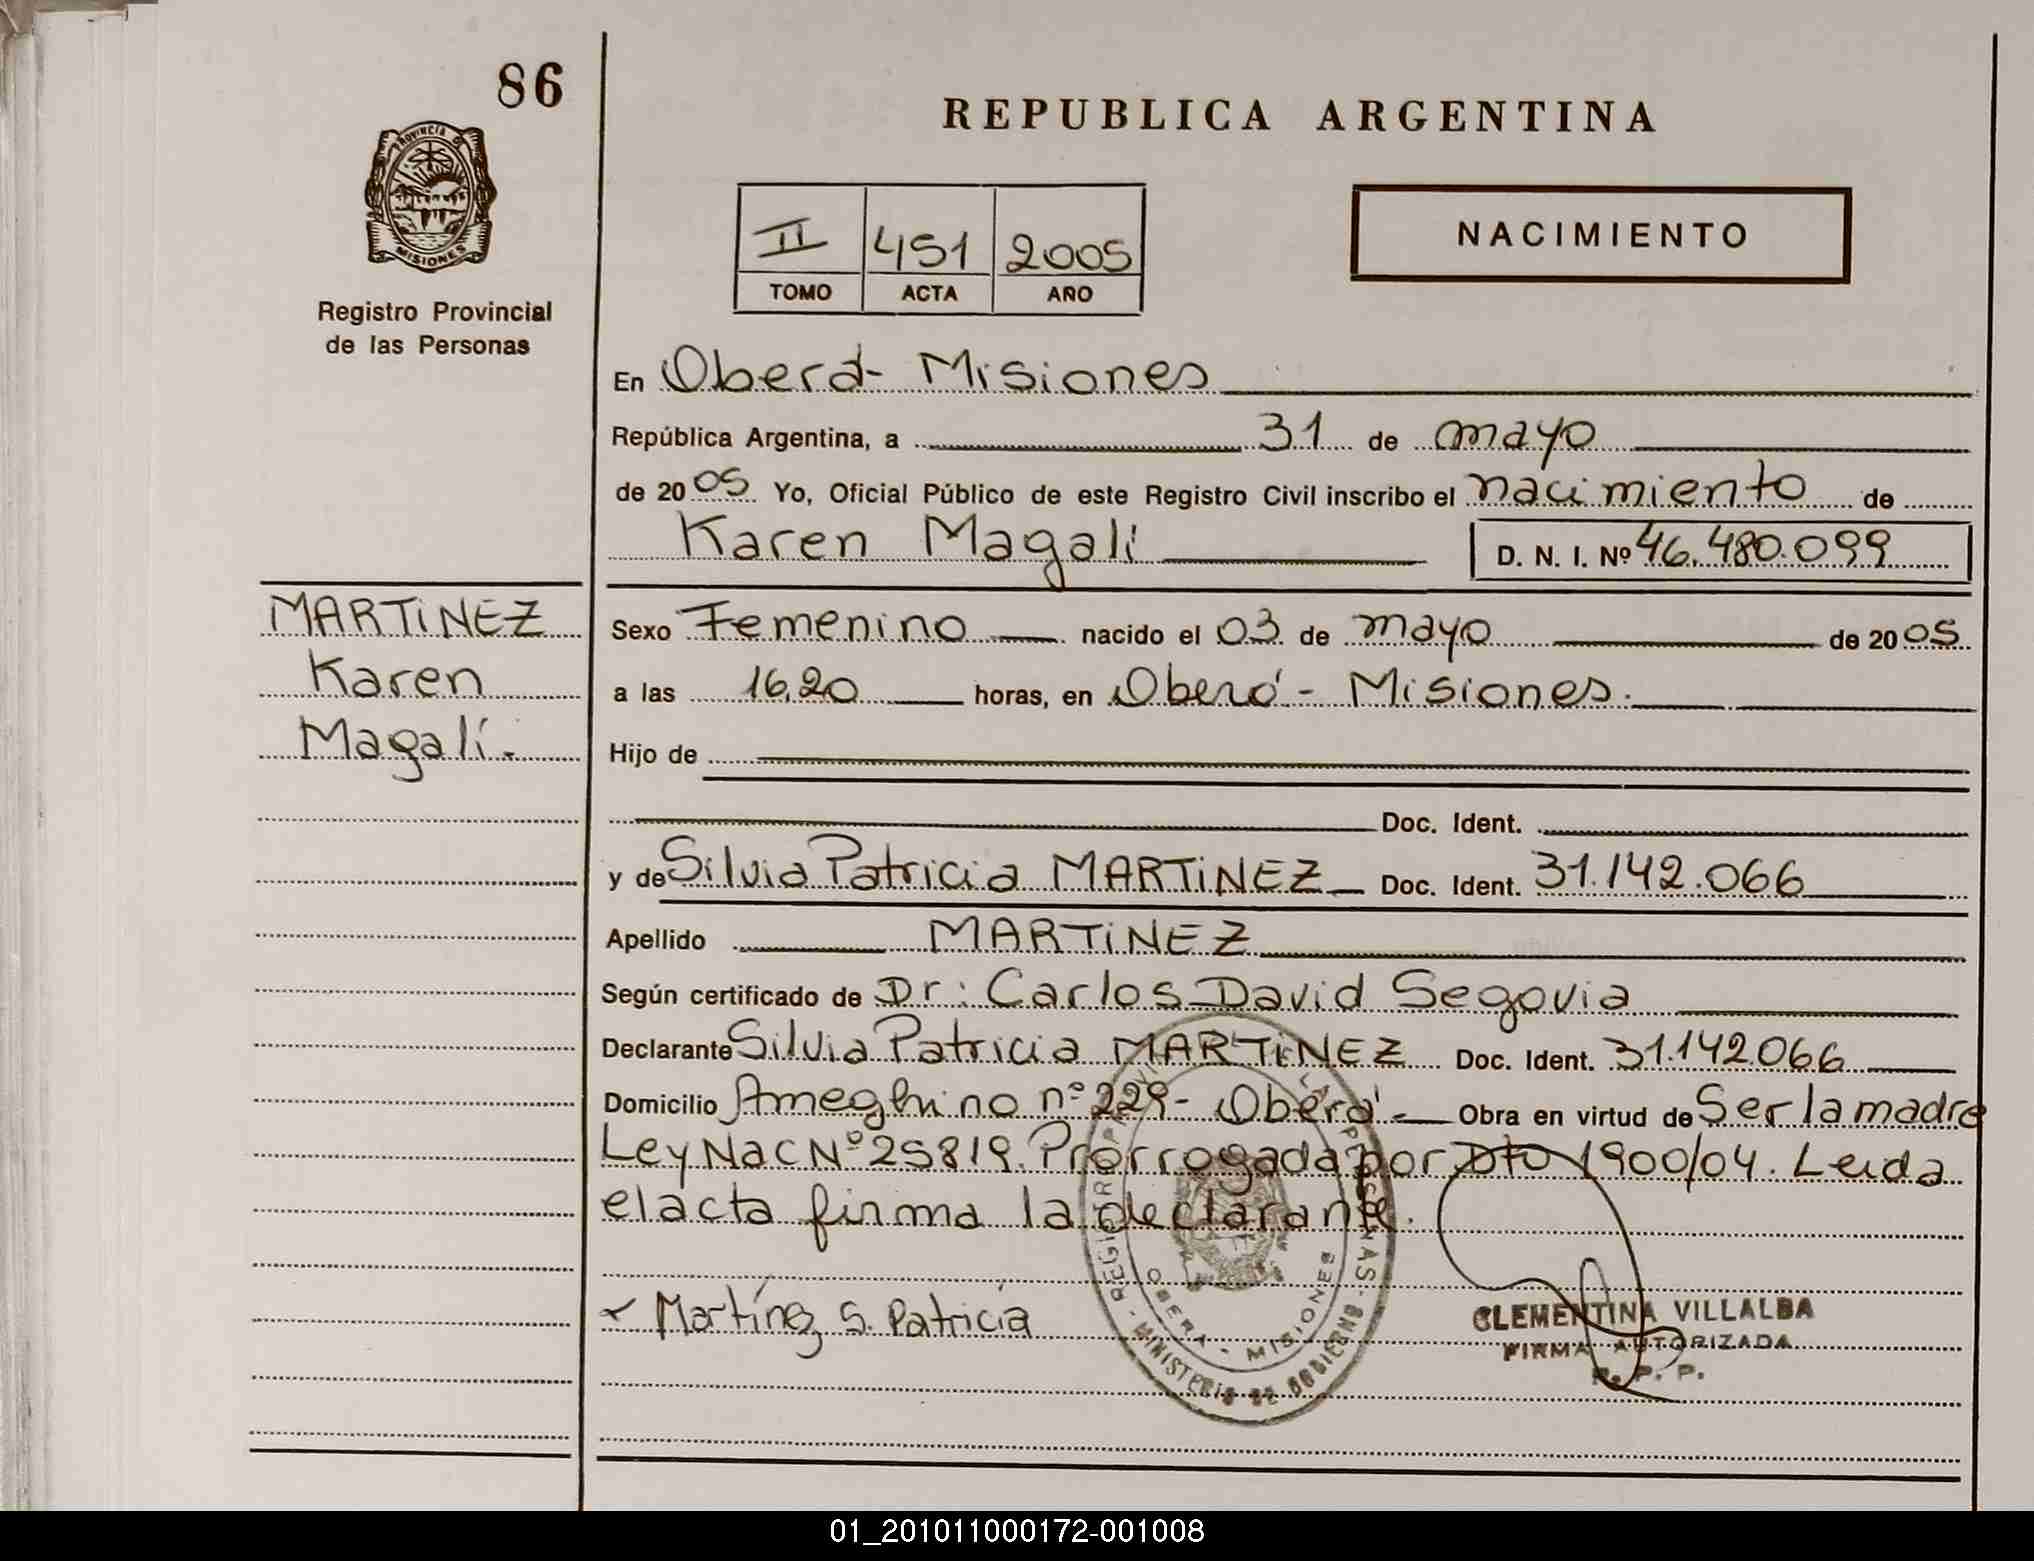 86
REPUBLICA ARGENTINA
PROVINCIA DE
MISIONES
Registro Provincial
de las Personas
II 451 2005
TOMO ACTA AÑO
NACIMIENTO
En Oberá - Misiones
República Argentina, a 31 de mayo
de 2005 Yo, Oficial Público de este Registro Civil inscribo el nacimiento de
Karen Magalí
D. N. I. Nº 46.480.099
MARTiNEZ
Karen
Magalí.-
Sexo Femenino nacido el 03 de mayo de 2005
a las 16,20 horas, en Oberá - Misiones.
Hijo de
Doc. Ident.
y de Silvia Patricia MARTiNEZ Doc. Ident. 31.142.066
Apellido MARTiNEZ
Según certificado de Dr: Carlos David Segovia
Declarante Silvia Patricia MARTiNEZ Doc. Ident. 31.142.066
Domicilio Ameghino nº 229 - Oberá - Obra en virtud de Ser la madre
Ley Nac Nº 25819. Prorrogada por Dto 1900/04. Leida
el acta firma la declarante.
Martínez S. Patricia
OBERA - MISIONES
MINISTERIO DE GOBIERNO
CLEMENTINA VILLALBA
FIRMA AUTORIZADA
R. P. P.
01_201011000172-001008